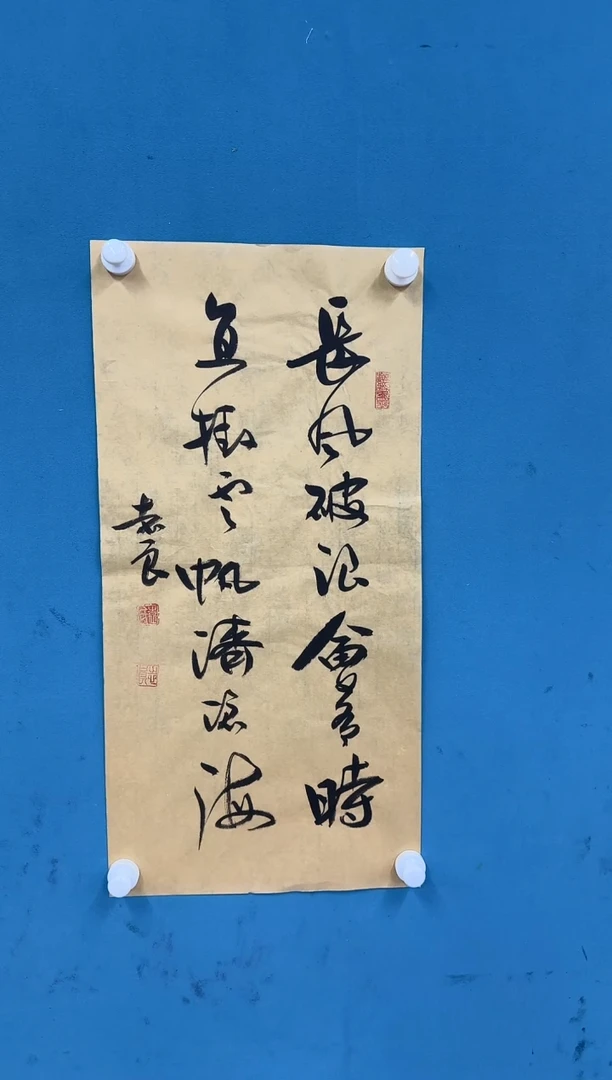 長風破浪會有時
直掛雲帆濟滄海
良